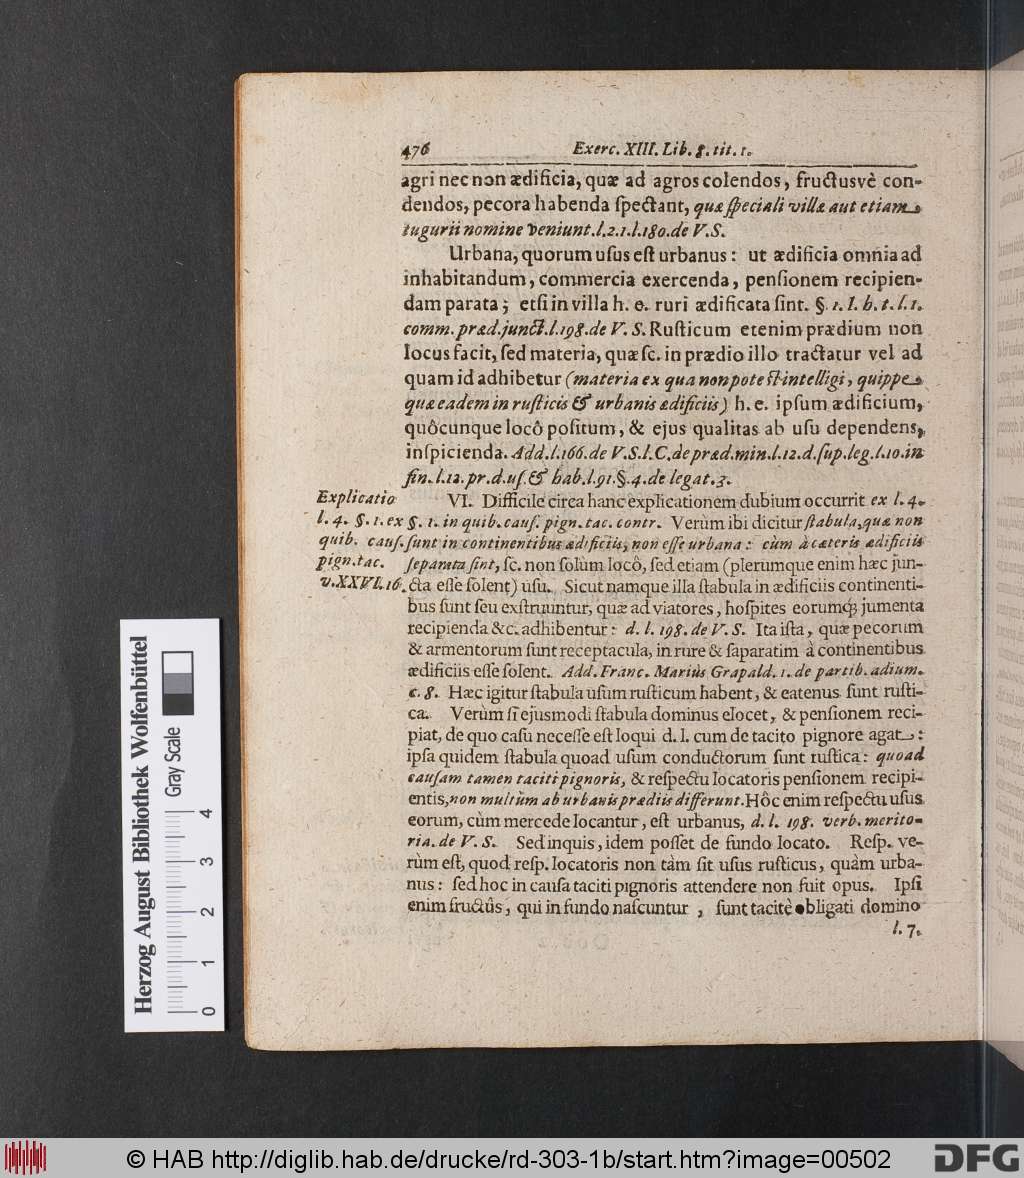 476 Exerc. XIII. Lib. 8. tit. 1.
agri nec non ædificia, quæ ad agros colendos, fructusvè con-
dendos, pecora habenda ſpectant, quæ ſpeciali villæ aut etiam
tugurii nomine veniunt. l. 2. 1. l. 180. de V. S.
Urbana, quorum uſus eſt urbanus: ut ædificia omnia ad
inhabitandum, commercia exercenda, penſionem recipien-
dam parata; etſi in villa h. e. ruri ædificata ſint. §. 1. I. h. t. l. 1.
comm. præd. junct. l. 198. de V. S. Ruſticum etenim prædium non
locus facit, ſed materia, quæ ſc. in prædio illo tractatur vel ad
quam id adhibetur (materia ex qua non poteſt intelligi, quippe
quæ eadem in ruſticis & urbanis ædificiis) h. e. ipſum ædificium,
quôcunque locô poſitum, & ejus qualitas ab uſu dependens,
inſpicienda. Add. l. 166. de V. S. l. C. de præd. min. l. 12. d. ſup. leg. l. 10. in
fin. l. 12. pr. d. uſ. & hab. l. 91. §. 4. de legat. 3.
Explicatio
l. 4. §. 1. ex
quib. cauſ.
pign. tac.
v. XXVI. 16.
VI. Difficile circa hanc explicationem dubium occurrit ex l. 4.
§. 1. in quib. cauſ. pign. tac. contr. Verùm ibi dicitur ſtabula, quæ non
ſunt in continentibus ædificiis, non eſſe urbana: cùm à cæteris ædificiis
ſeparata ſint, ſc. non ſolùm locô, ſed etiam (plerumque enim hæc jun-
cta eſſe ſolent) uſu. Sicut namque illa ſtabula in ædificiis continenti-
bus ſunt ſeu exſtruuntur, quæ ad viatores, hoſpites eorumq; jumenta
recipienda &c. adhibentur: d. l. 198. de V. S. Ita iſta, quæ pecorum
& armentorum ſunt receptacula, in rure & ſaparatim à continentibus
ædificiis eſſe ſolent. Add. Franc. Mariùs Grapald. 1. de partib. ædium.
c. 8. Hæc igitur ſtabula uſum ruſticum habent, & eatenus ſunt ruſti-
ca. Verùm ſi ejusmodi ſtabula dominus elocet, & penſionem reci-
piat, de quo caſu neceſſe eſt loqui d. l. cum de tacito pignore agat:
ipſa quidem ſtabula quoad uſum conductorum ſunt ruſtica: quoad
cauſam tamen taciti pignoris, & reſpectu locatoris penſionem recipi-
entis, non multùm ab urbanis prædiis differunt. Hôc enim reſpectu uſus
eorum, cùm mercede locantur, eſt urbanus, d. l. 198. verb. merito-
ria. de V. S. Sed inquis, idem poſſet de fundo locato. Reſp. ve-
rùm eſt, quod reſp. locatoris non tàm ſit uſus ruſticus, quàm urba-
nus: ſed hoc in cauſa taciti pignoris attendere non fuit opus. Ipſi
enim fructûs, qui in fundo naſcuntur, ſunt tacitè obligati domino
l. 7.
Herzog August Bibliothek Wolfenbüttel
Gray Scale
0 1 2 3 4
© HAB http://diglib.hab.de/drucke/rd-303-1b/start.htm?image=00502
DFG